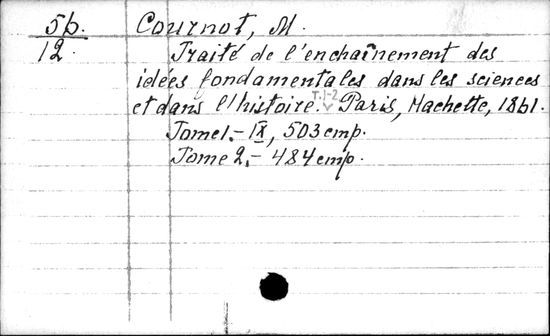 5b. Cournot, M.
12. Traité de l'enchaînement des
idées fondamentales dans les sciences
et dans l'histoire. T.1-2 Paris, Hachette, 1861.
Tome 1.- IX, 503 cmp.
Tome 2.- 484 cmp.